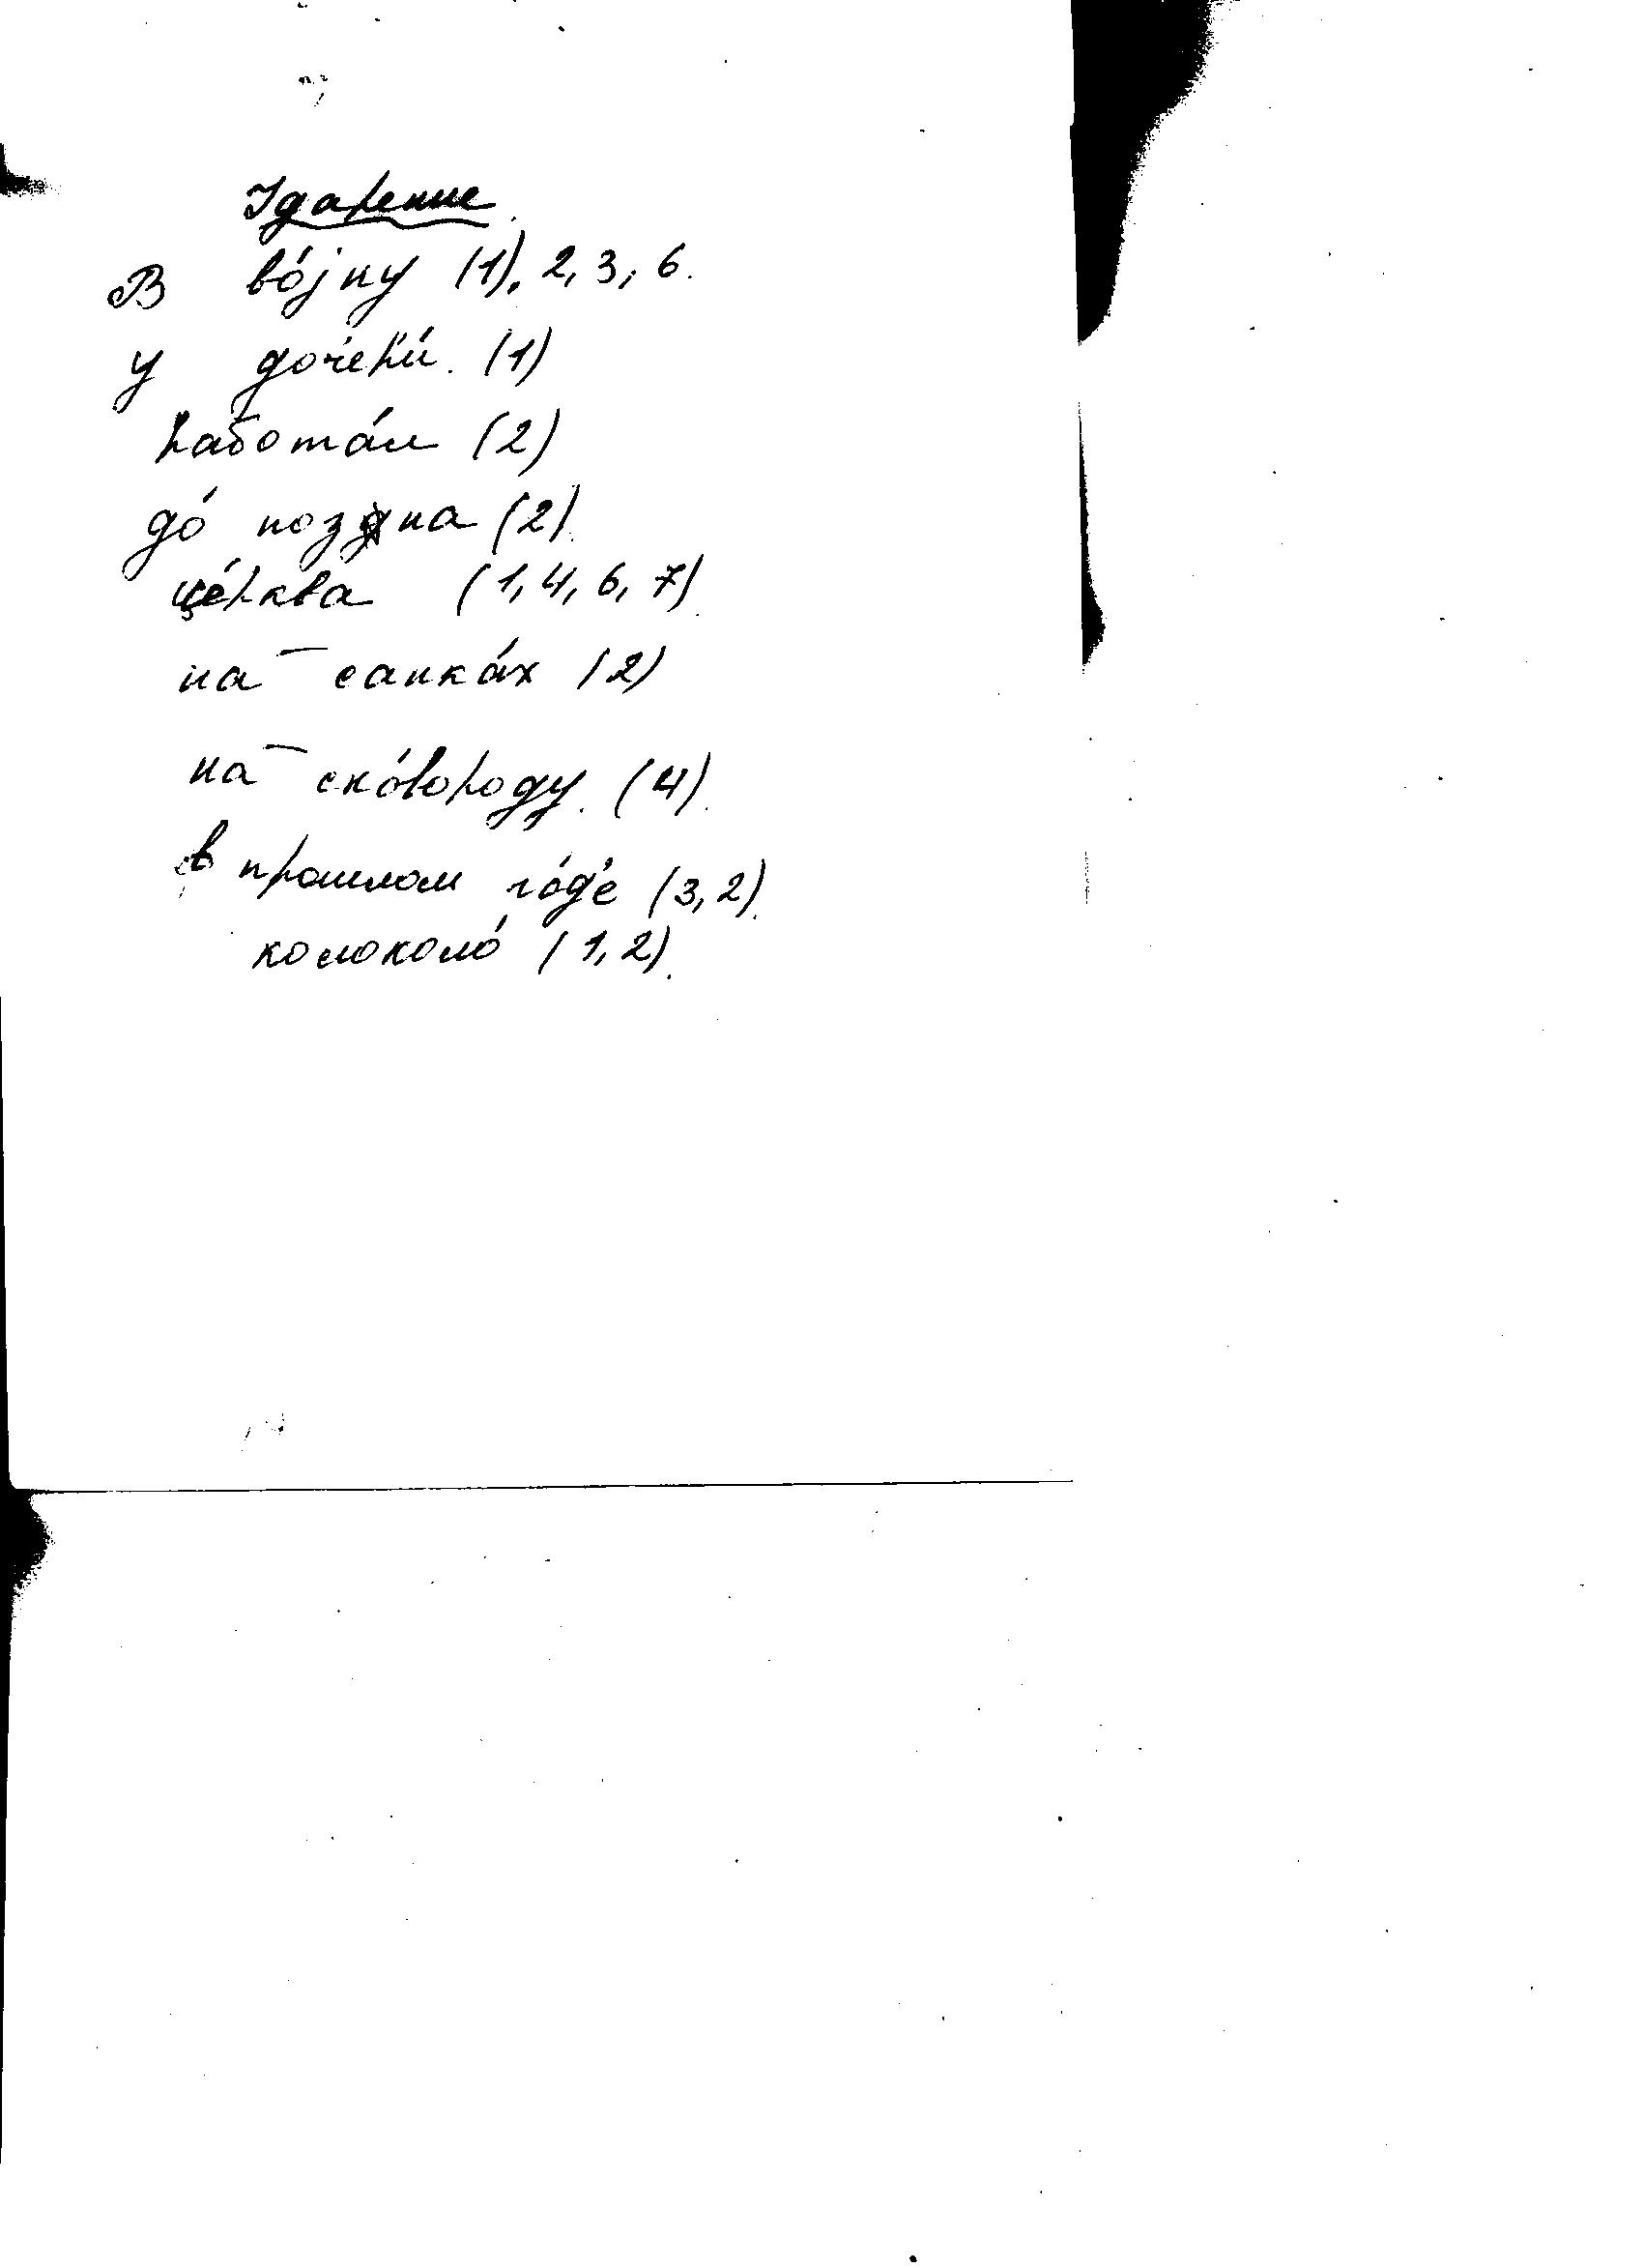 Ударение
В во́jну (1), 2, 3, 6.
у дочер'и́. (1)
работа́л (2)
до́ поздна (2)
це́рква (1, 4, 6, 7)
на санка́х (2)
на ско́вороду. (4)
в прошлом го́д'е (3, 2)
колоколо́ (1, 2)